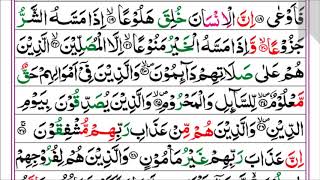 فَاَوْعٰى ۝۱۸ اِنَّ الْاِنْسَانَ خُلِقَ هَلُوْعًا ۝۱۹ اِذَا مَسَّهُ الشَّرُّ
جَزُوْعًا ۝۲۰ وَّاِذَا مَسَّهُ الْخَيْرُ مَنُوْعًا ۝۲۱ اِلَّا الْمُصَلِّيْنَ ۝۲۲ الَّذِيْنَ
هُمْ عَلٰى صَلَاتِهِمْ دَآىِٕمُوْنَ ۝۲۳ وَالَّذِيْنَ فِيْٓ اَمْوَالِهِمْ حَقٌّ
مَّعْلُوْمٌ ۝۲۴ لِّلسَّآىِٕلِ وَالْمَحْرُوْمِ ۝۲۵ وَالَّذِيْنَ يُصَدِّقُوْنَ بِيَوْمِ
الدِّيْنِ ۝۲۶ وَالَّذِيْنَ هُمْ مِّنْ عَذَابِ رَبِّهِمْ مُّشْفِقُوْنَ ۝۲۷
اِنَّ عَذَابَ رَبِّهِمْ غَيْرُ مَاْمُوْنٍ ۝۲۸ وَالَّذِيْنَ هُمْ لِفُرُوْجِهِمْ